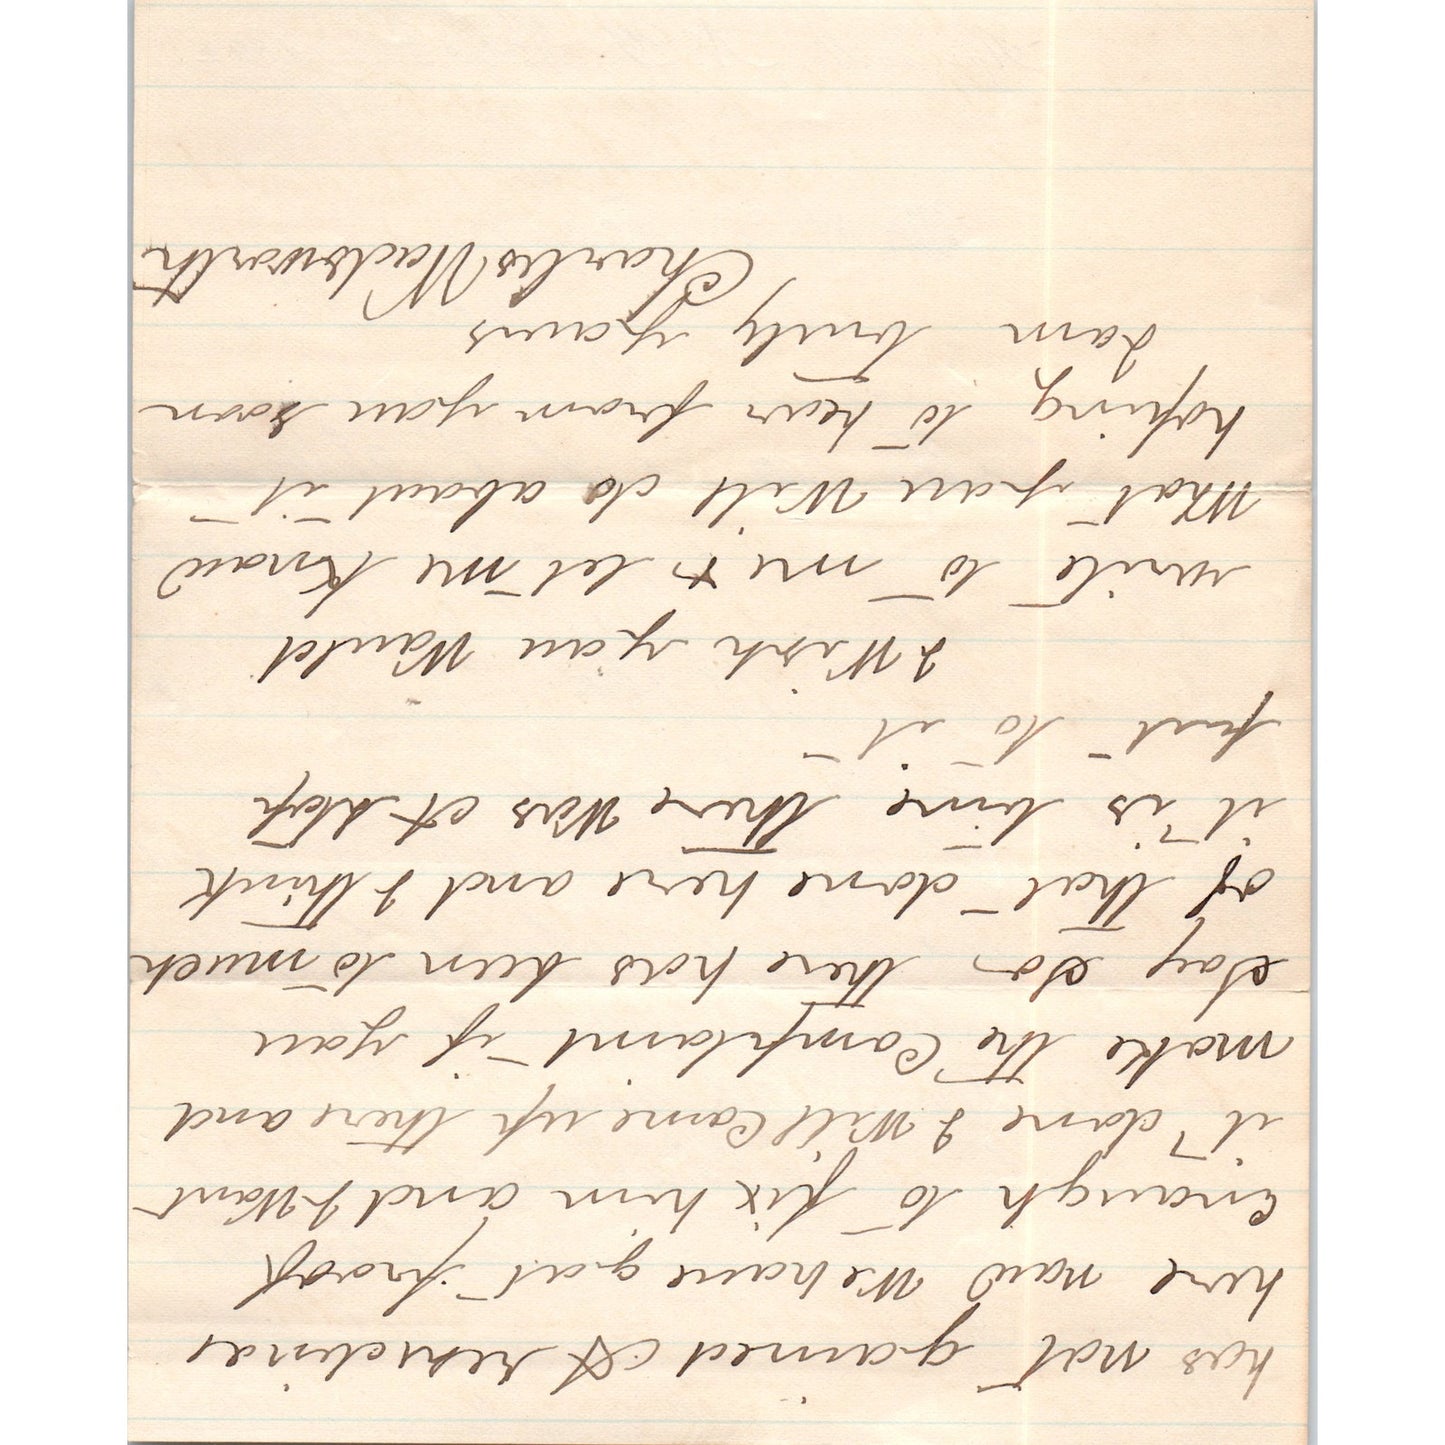 has not gained A residince
here now We have got proof
Enough to fix him and I Want
it done I Will Come up there and
make the Complaint if you
Say So there has been to much
of that done here and I think
it is time there Was A Stop
put to it
I Wish you Would
write to me & let me Know
What you Will do about it
hoping to hear from you soon
I am truly yours
Charles Wadsworth